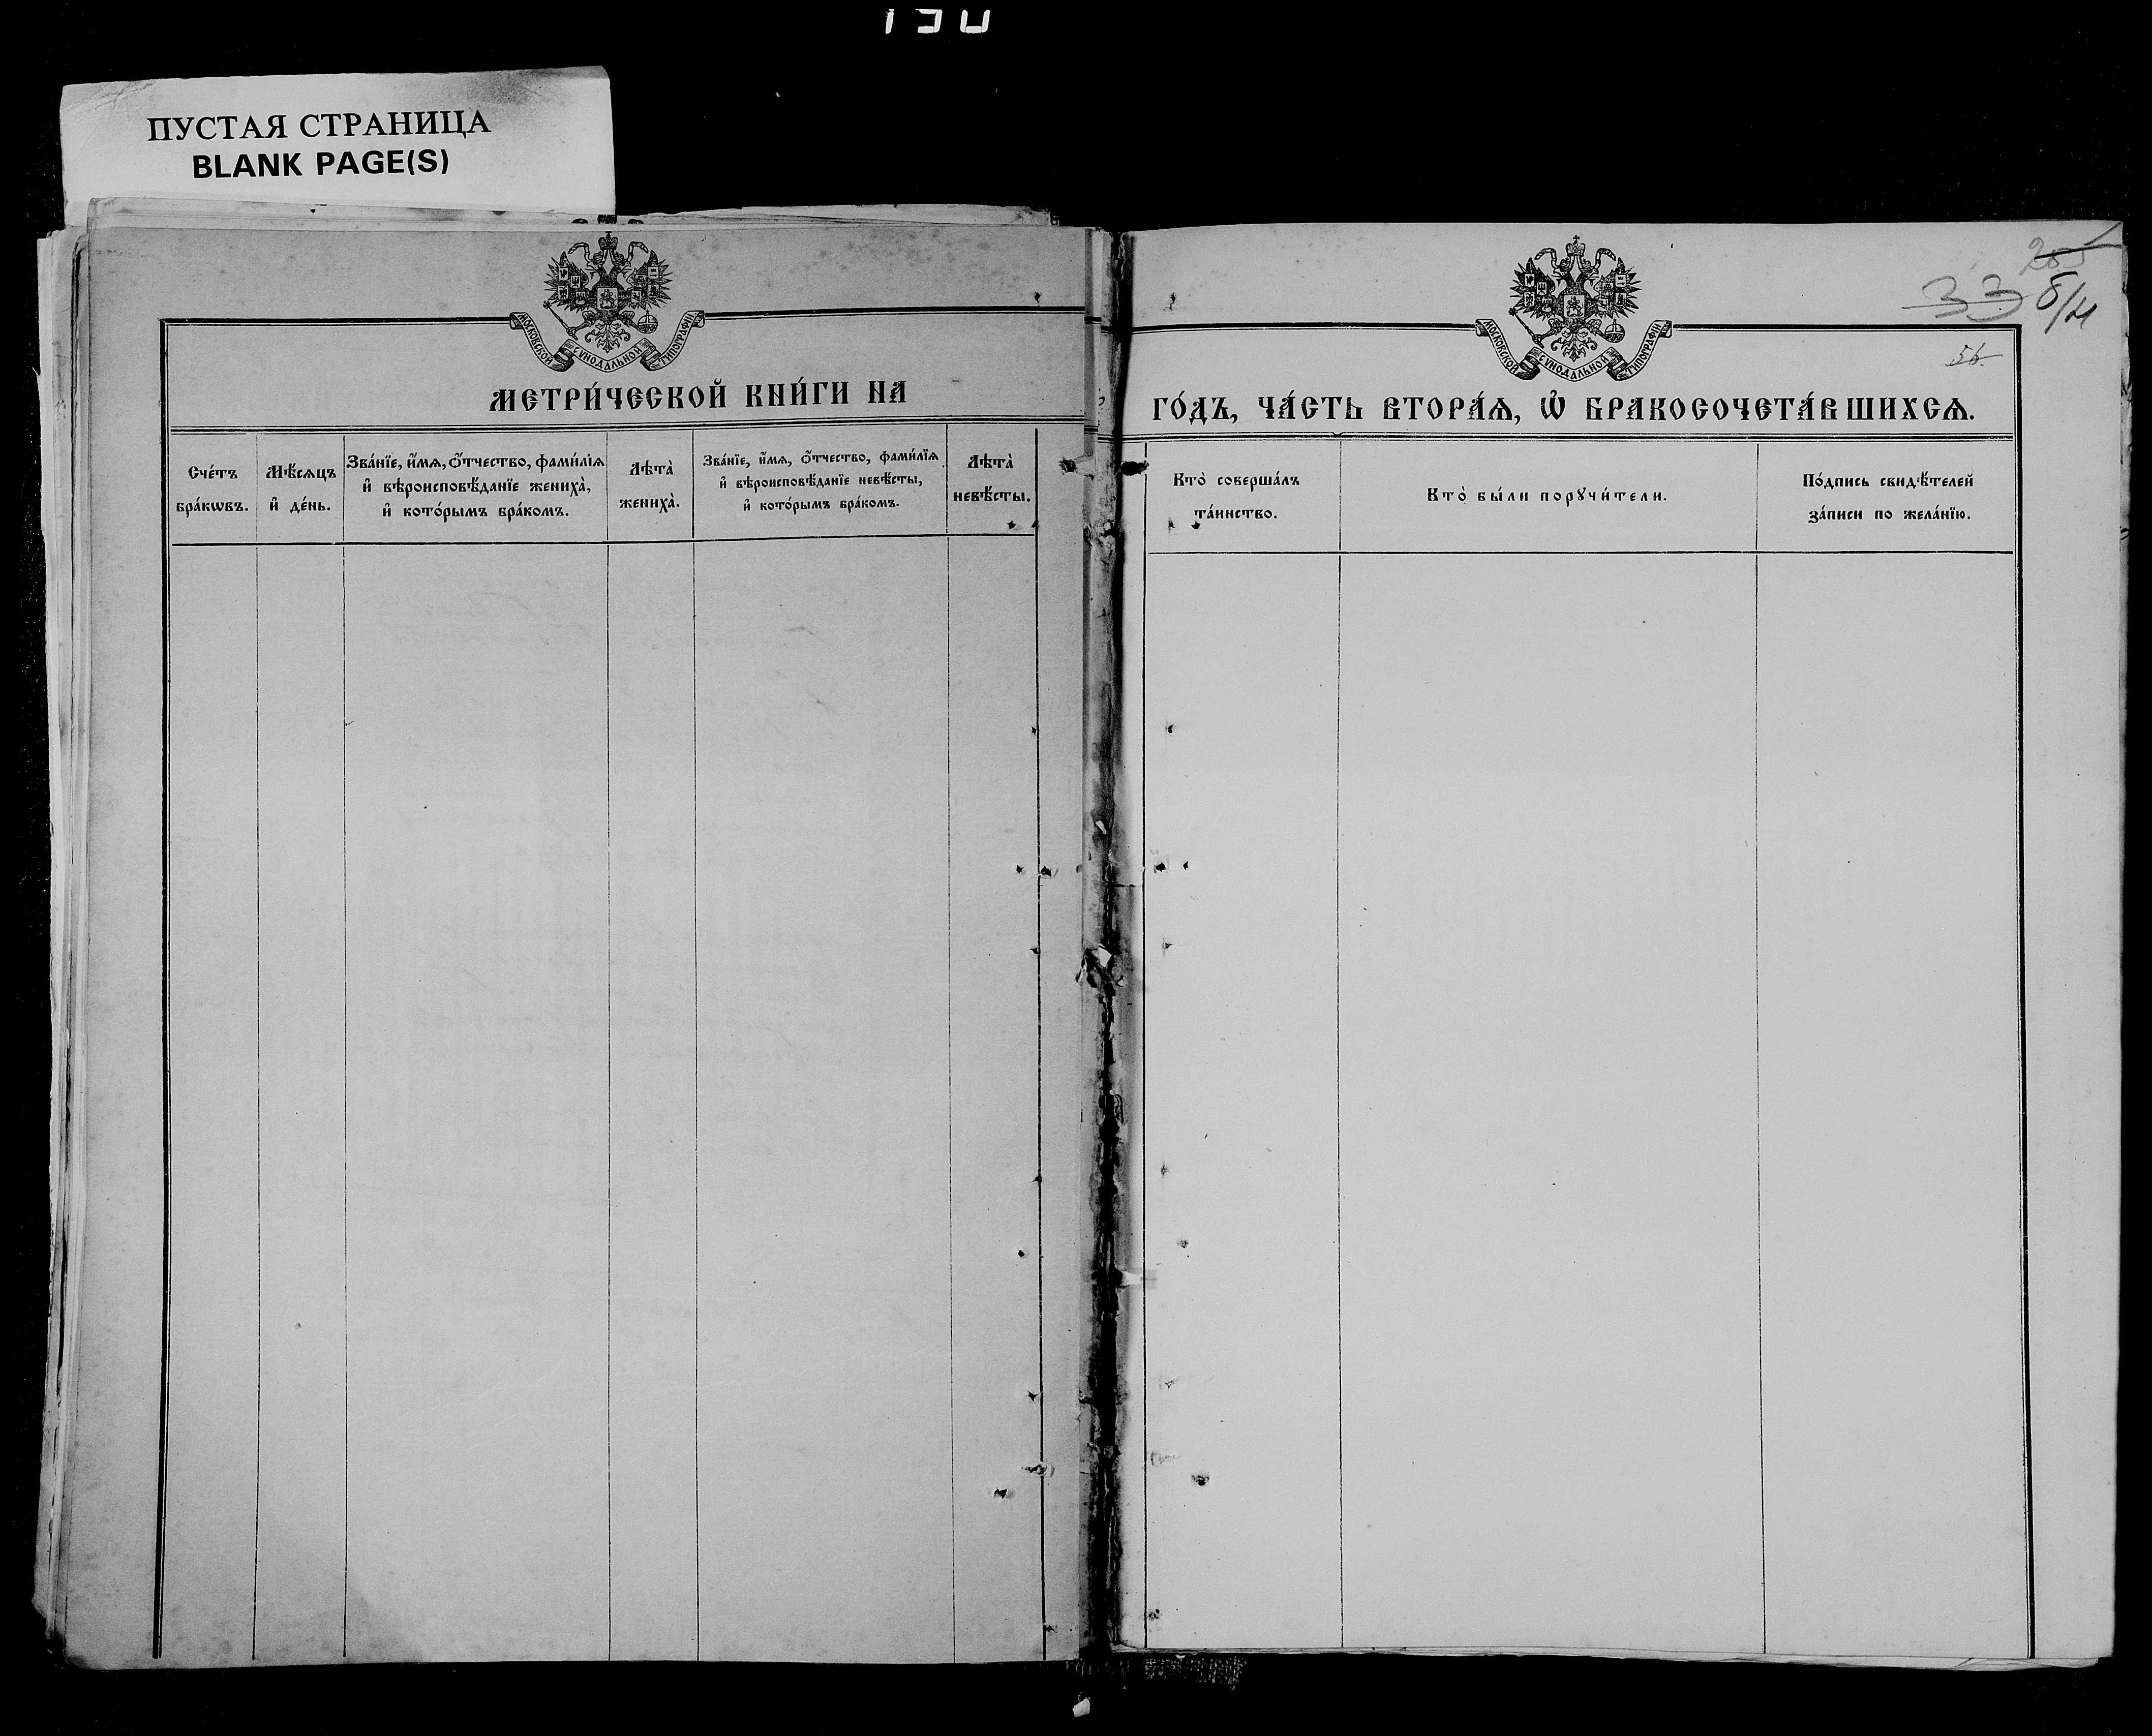 ПУСТАЯ СТРАНИЦА
BLANK PAGE(S)
МОСКОВСКОЙ СѴНОДАЛЬНОЙ ТИПОГРАФІИ
МЕТРИ́ЧЕСКОЙ КНИ́ГИ НА
Сче́тъ
бра́кѡвъ.
Мѣ́сѧцъ
и҆ де́нь.
Зва́нїе, и҆́мѧ, ѻ҆́тчество, фами́лїѧ
и҆ вѣроисповѣ́данїе жениха̀,
и҆ кото́рымъ бра́комъ.
Лѣта̀
жениха̀.
Зва́нїе, и҆́мѧ, ѻ҆́тчество, фами́лїѧ
и҆ вѣроисповѣ́данїе невѣ́сты,
и҆ кото́рымъ бра́комъ.
Лѣта̀
невѣ́сты.
33 б/н
56
МОСКОВСКОЙ СѴНОДАЛЬНОЙ ТИПОГРАФІИ
ГО́ДЪ, ЧА́СТЬ ВТОРА́Ѧ, Ѡ҆ БРАКОСОЧЕТА́ВШИХСѦ.
Кто̀ соверша́лъ
та́инство.
Кто̀ бы́ли порꙋчи́тели.
По́дпись свидѣ́телей
за́писи по жела́нїю.